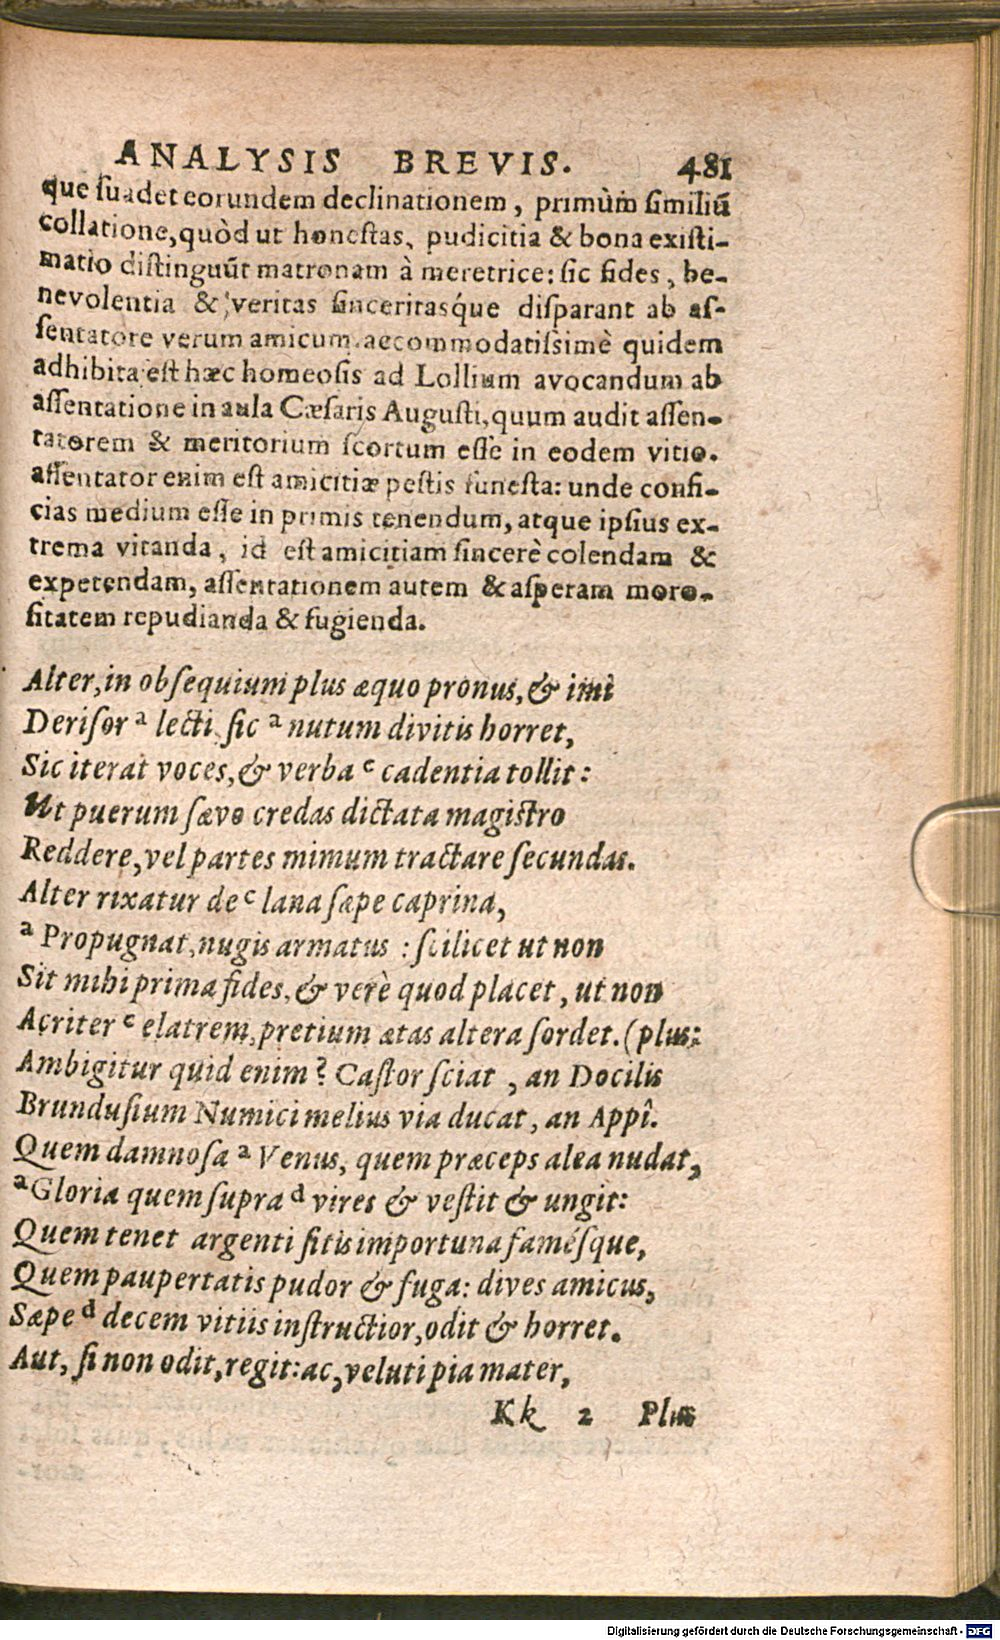 ANALYSIS BREVIS. 481
que ſuadet eorundem declinationem, primùm ſimiliũ
collatione, quòd ut honeſtas, pudicitia & bona exiſti-
matio diſtinguũt matronam à meretrice: ſic fides, be-
nevolentia & veritas ſinceritasq́ue diſparant ab aſ-
ſentatore verum amicum. accommodatiſsimè quidem
adhibita eſt hæc homeoſis ad Lollium avocandum ab
aſſentatione in aula Cæſaris Auguſti, quum audit aſſen-
tatorem & meritorium ſcortum eſſe in eodem vitio.
aſſentator enim eſt amicitiæ peſtis funeſta: unde confi-
cias medium eſſe in primis tenendum, atque ipſius ex-
trema vitanda, id eſt amicitiam ſincerè colendam &
expetendam, aſſentationem autem & aſperam moro-
ſitatem repudianda & fugienda.
Alter, in obſequium plus æquo pronus, & imi
Deriſor a lecti, ſic a nutum divitis horret,
Sic iterat voces, & verba c cadentia tollit:
Ut puerum ſævo credas dictata magiſtro
Reddere, vel partes mimum tractare ſecundas.
Alter rixatur de c lana ſæpe caprina,
a Propugnat, nugis armatus: ſcilicet ut non
Sit mihi prima fides, & verè quod placet, ut non
Acriter c elatrem, pretium ætas altera ſordet. (plus:
Ambigitur quid enim? Caſtor ſciat, an Docilis
Brunduſium Numici melius via ducat, an Appî.
Quem damnoſa a Venus, quem præceps alea nudat,
a Gloria quem ſupra d vires & veſtit & ungit:
Quem tenet argenti ſitis importuna faméſque,
Quem paupertatis pudor & fuga: dives amicus,
Sæpe d decem vitiis inſtructior, odit & horret.
Aut, ſi non odit, regit: ac, veluti pia mater,
Kk 2 Plus
Digitalisierung gefördert durch die Deutsche Forschungsgemeinschaft - DFG